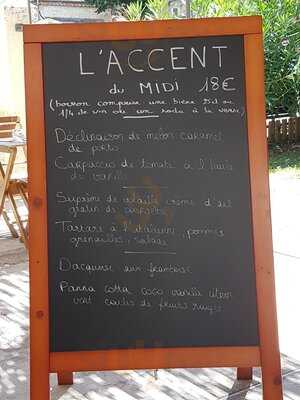 L'ACCENT
du MIDI 18€
(boisson comprise une bière 25cl ou
1/4 de vin ou un soda à la verre)
Déclinaison de melon caramel
de porto
Carpaccio de tomate à l'huile
de vanille
Suprême de volaille crème d'ail
gratin de
Tartare à l'italienne, pommes
grenailles, salade
Dacquoise aux framboises
Panna cotta coco vanille citron
vert coulis de fruits rouges